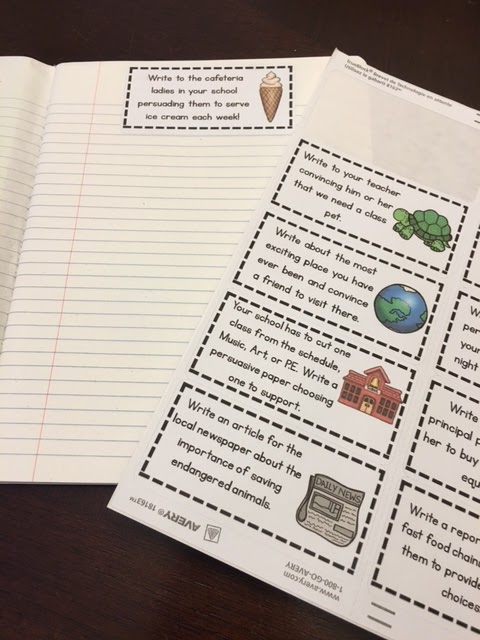 Write to the cafeteria
ladies in your school
persuading them to serve
ice cream each week!
TrueBlock® Brevet de technologie en attente
Utilisez le gabarit 8163™
Write to your teacher
convincing him or her
that we need a class
pet.
Write about the most
exciting place you have
ever been and convince
a friend to visit there.
Your school has to cut one
class from the schedule,
Music, Art, or P.E. Write a
persuasive paper choosing
one to support.
Write an article for the
local newspaper about the
importance of saving
endangered animals.
DAILY NEWS
W
per
your
night
Write
principal p
her to buy
equ
Write a repor
fast food chain
them to provide
choices
AVERY® 18163™
www.avery.com
1-800-GO-AVERY